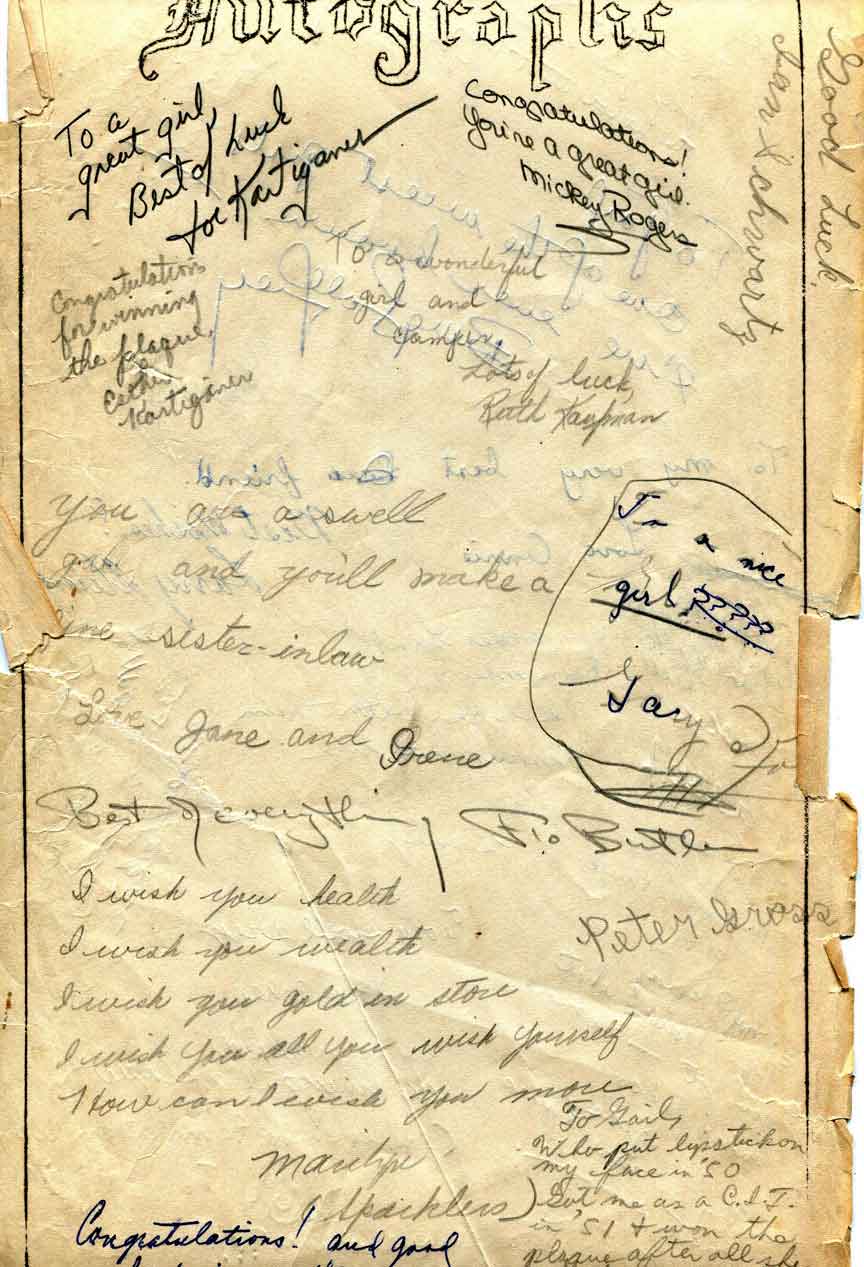 Autographs
To a
great girl,
Best of Luck
Joe Kartiganer
Congratulations!
You're a great girl.
Mickey Rogers
Good Luck,
Schwartz
To a wonderful
girl and
camper.
Lots of luck,
Ruth Kaufman
Congratulations
for winning
the plaque,
Esther
Kartiganer
To my very best friend
You are a swell
girl and you'll make a
fine sister-inlaw
Love Jane and Irene
To a nice
girl ?????
Gary
Best of everything Flo Butler
Peter Gross
I wish you health
I wish you wealth
I wish you gold in store
I wish you all you wish yourself
How can I wish you more
Marilyn
(Spacklers)
To Gail,
Who put lipstick on
my face in '50
Got me as a C.I.T.
in '51 & won the
plaque after all she
Congratulations! and good